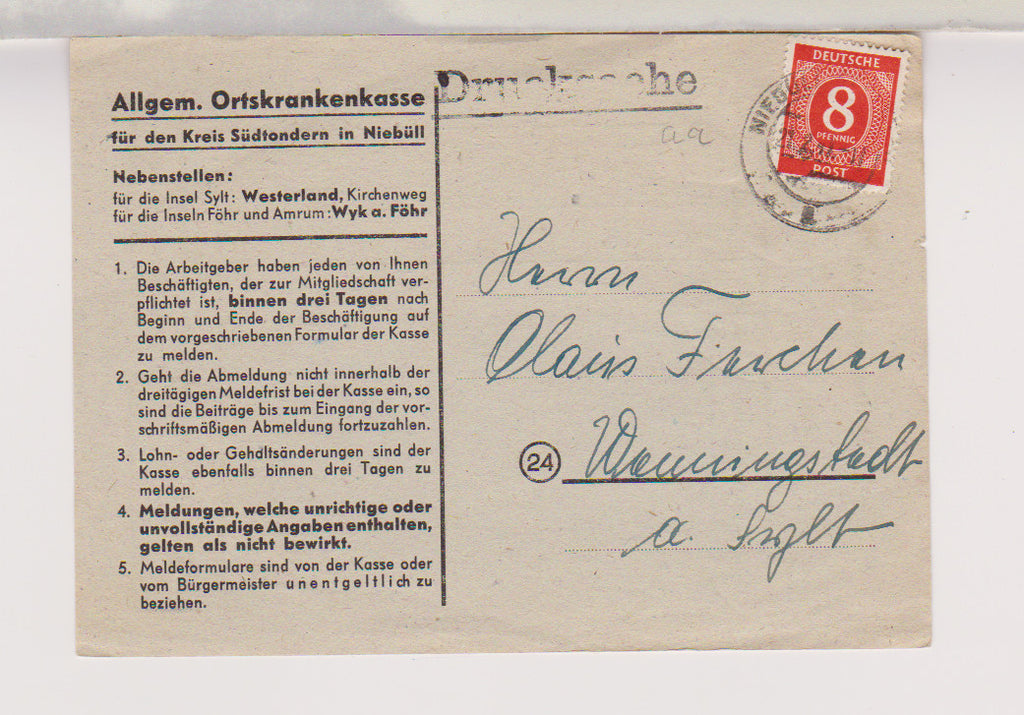 Allgem. Ortskrankenkasse
für den Kreis Südtondern in Niebüll
Nebenstellen:
für die Insel Sylt: Westerland, Kirchenweg
für die Inseln Föhr und Amrum: Wyk a. Föhr
1. Die Arbeitgeber haben jeden von Ihnen
Beschäftigten, der zur Mitgliedschaft ver-
pflichtet ist, binnen drei Tagen nach
Beginn und Ende der Beschäftigung auf
dem vorgeschriebenen Formular der Kasse
zu melden.
2. Geht die Abmeldung nicht innerhalb der
dreitägigen Meldefrist bei der Kasse ein, so
sind die Beiträge bis zum Eingang der vor-
schriftsmäßigen Abmeldung fortzuzahlen.
3. Lohn- oder Gehaltsänderungen sind der
Kasse ebenfalls binnen drei Tagen zu
melden.
4. Meldungen, welche unrichtige oder
unvollständige Angaben enthalten,
gelten als nicht bewirkt.
5. Meldeformulare sind von der Kasse oder
vom Bürgermeister unentgeltlich zu
beziehen.
Drucksache
aa
DEUTSCHE
8
PFENNIG
POST
Herrn
24 Wenningstedt
a. Sylt